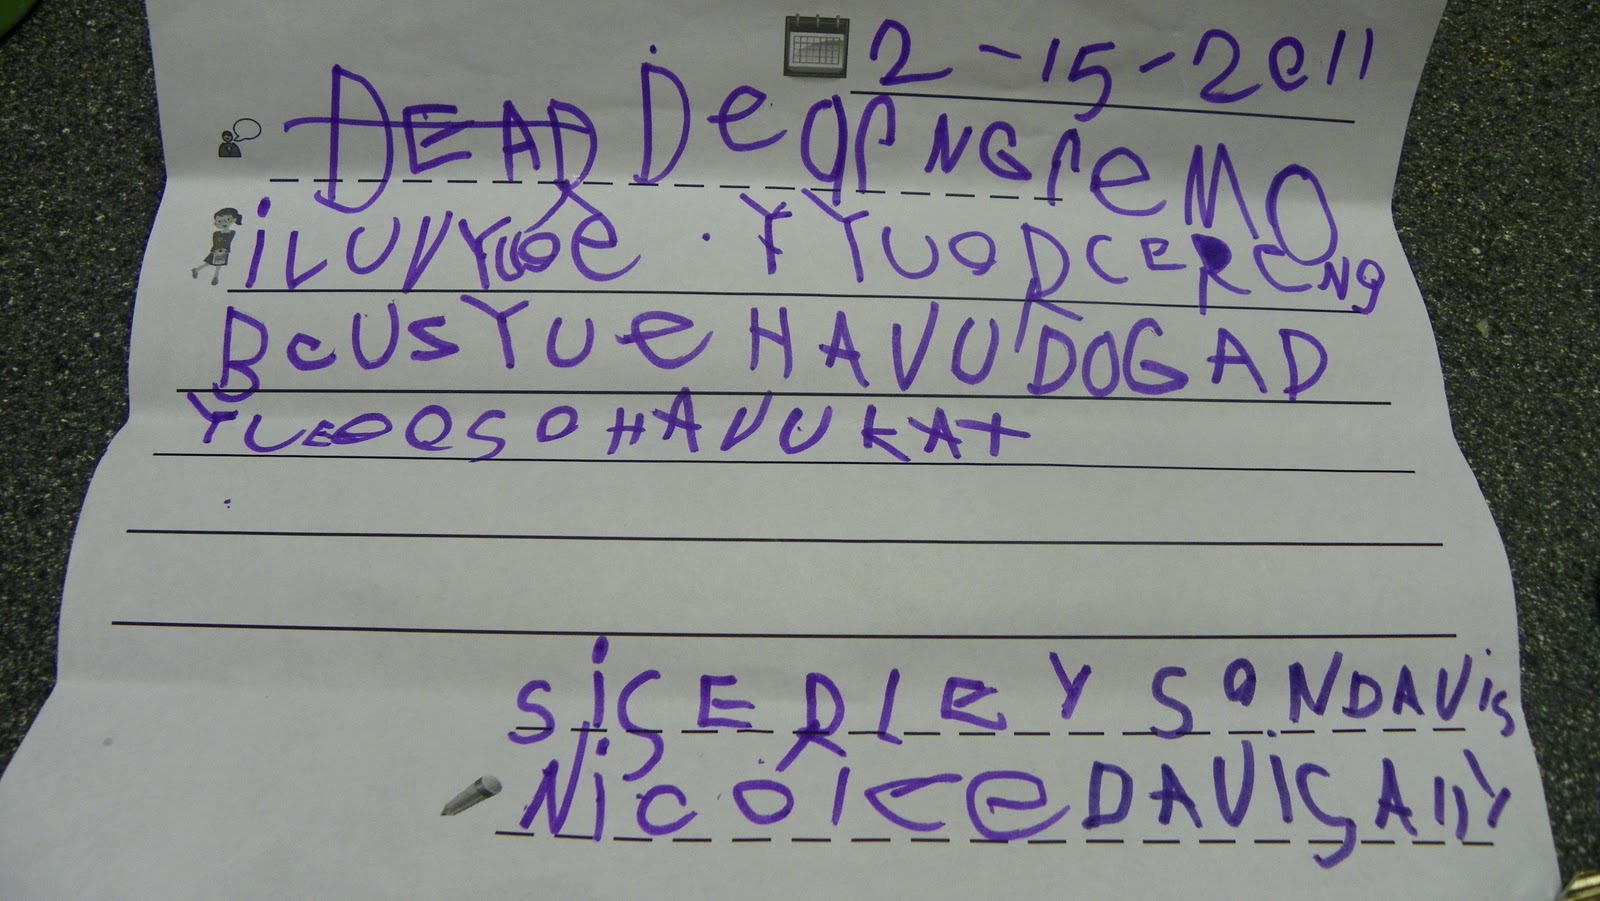 2-15-2011
DEAD DeqrNGreMO
iLUVYUOe . YYUORCERCNg
BcUSYUeHAVUDOGAD
YUEOeSOHAVUKAT
SiCERLEY SONDAVis
NiCOlCeDAViSAllY